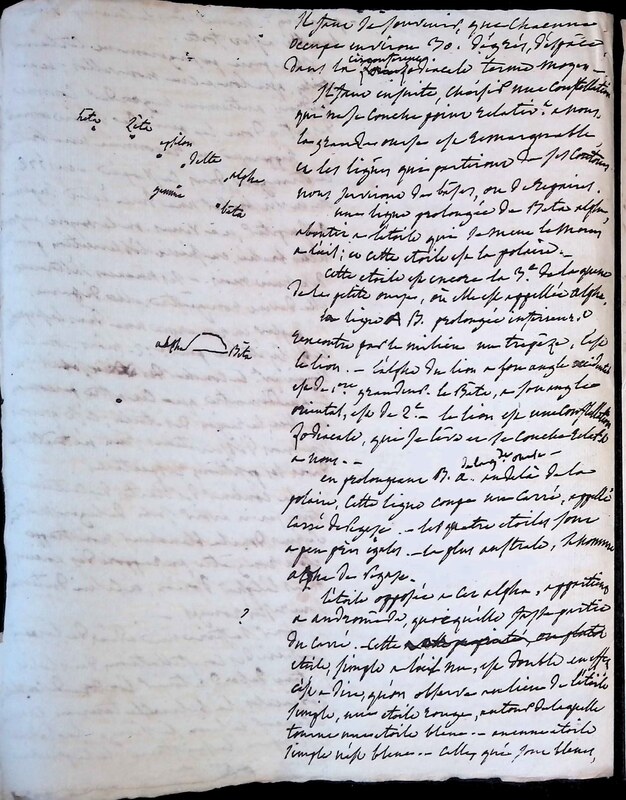 Il faut se souvenir, que chacune
occupe environ 30. degrés, d'espace,
circonference
dans la zodiacale terme moyen —
Il faut ensuite, choisir une constellation
que ne se couche point relativt. a nous.
la grande ourse est remarquable
et les lignes qui partiront de ses contours
nous serviront de bases, ou de repaires.
une ligne prolongée de Beta alpha,
aboutit a l'étoile qui se meut le moins
a l'œil; et cette etoile est la polaire. —
Cette etoile est encore la 3e. de la queue
de la petite ourse, ou elle est appellée alpha.
la ligne A B. prolongée inferieure.t
rencontre par le milieu un trapèze. C'est
le lion. — l'alpha du lion a son angle occidental
est de 1ere grandeur. le Beta, a son angle
oriental, est de 2e. — le lion est une constellation
Zodiacale, qui se lève et se couche relativt.
a nous. —
de la gde ourse —
en prolongeant B. a. au delà de la
polaire, cette ligne coupe un carré, appellé
carré de Pegase. — les quatre etoiles sont
a peu près égales. — la plus australe, se nomme
alpha de Pegase.
l'étoile opposée a cet alpha, appartient
a andromède, quoiqu'elle fasse partie
du carré. — Cette
etoile, simple a l'œil nu, est double en effet
c'est a dire, qu'on observe au lieu de l'étoile
simple, une etoile rouge, autour de laquelle
tourne une etoile bleue. — aucune etoile
simple n'est bleue. — celles qui sont bleues,
heta
Zeta
epsilon
delta
alpha
gamma
beta
alpha
Beta
?